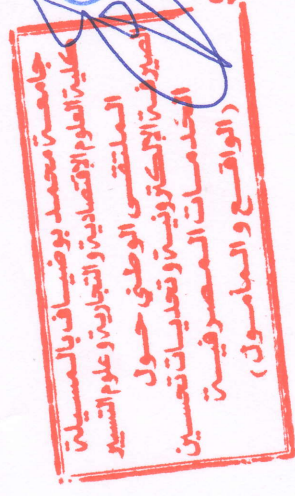 جامعة محمد بوضياف بالمسيلة
كلية العلوم الإقتصادية و التجارية و علوم التسيير
الملتقى الوطني حول
الصيرفة الإلكترونية و تحديات تحسين
الخدمات المصرفية
(الواقع و المأمول)